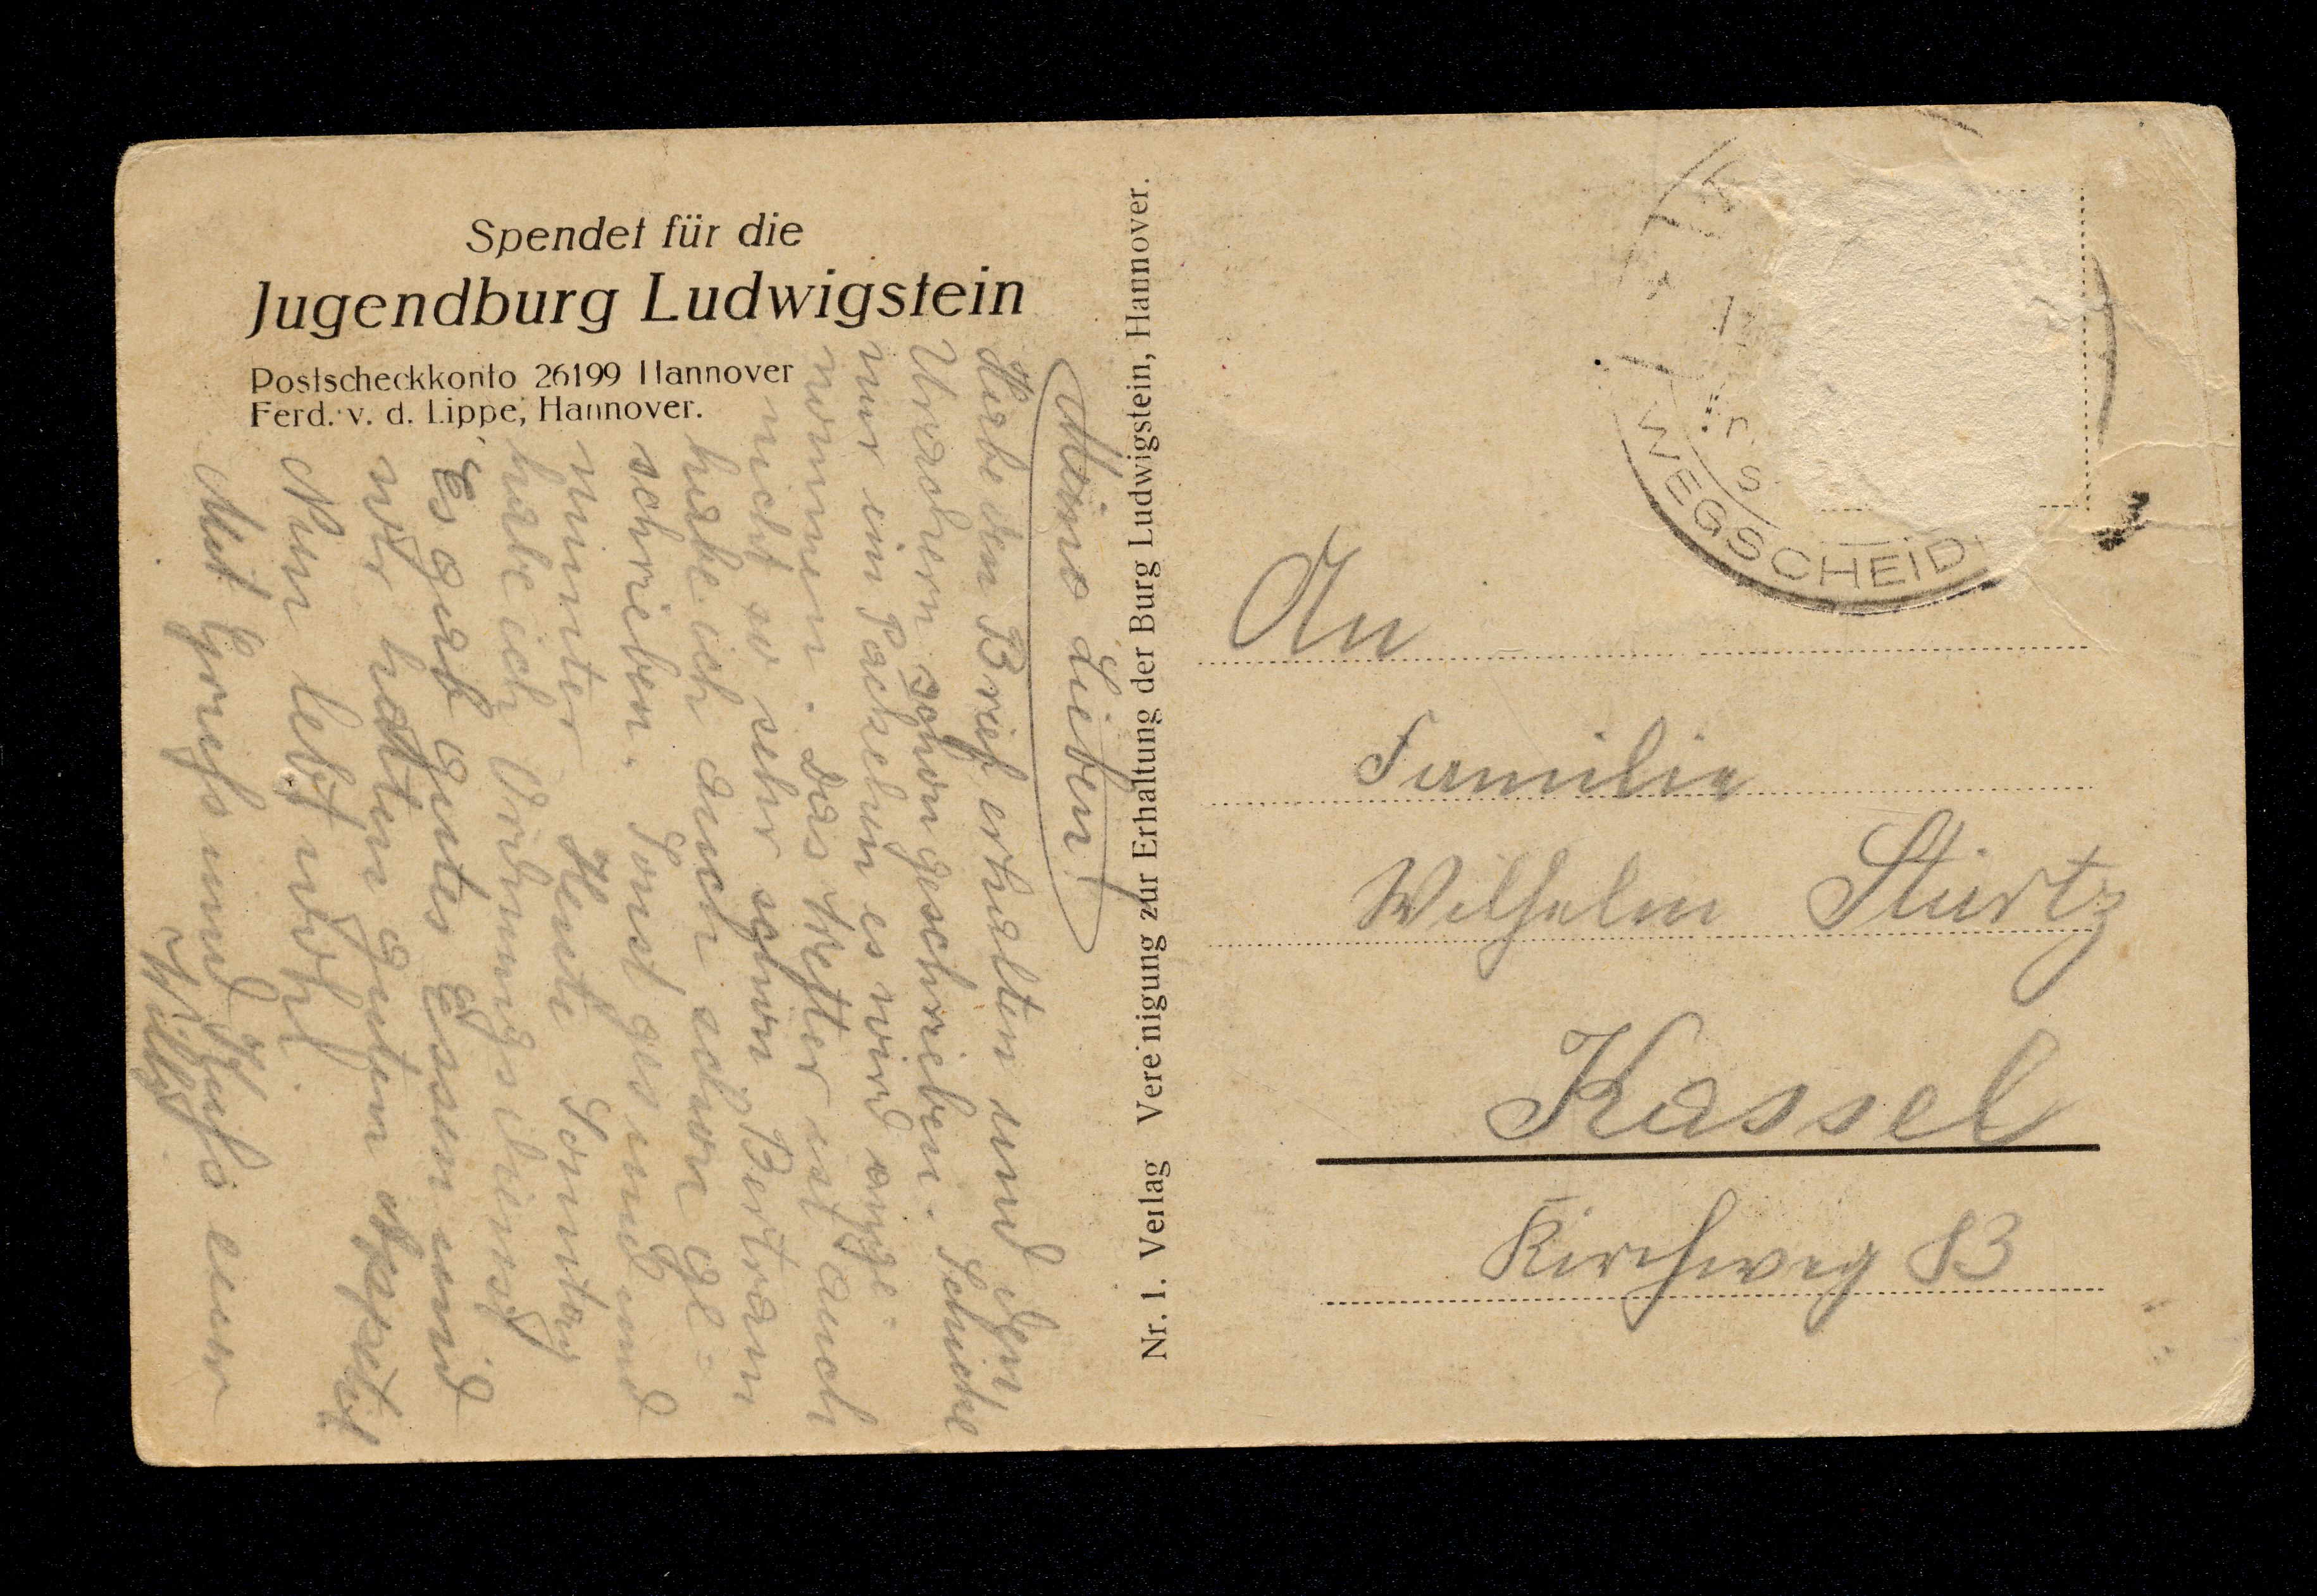 Spendet für die
Jugendburg Ludwigstein
Postscheckkonto 26199 Hannover
Ferd. v. d. Lippe, Hannover.
Meine Lieben!
Habe den Brief erhalten und dem
schon geschrieben. Schicke
nur ein Päckchen es wird ange-
nommen. Das Wetter ist auch
nicht so sehr schön Bertram
habe ich auch schon ge-
schrieben. Sonst gesund und
munter Heute Sonntag
habe ich Ordnungsdienst
Es gab gutes Essen und
wir hatten guten Appetit
Nun lebt wohl.
Mit Gruß und Kuß euer
Willy.
Nr. 1. Verlag Vereinigung zur Erhaltung der Burg Ludwigstein, Hannover.
WEGSCHEID
An
Familie
Wilhelm Stürtz
Kassel
Kirchweg 83